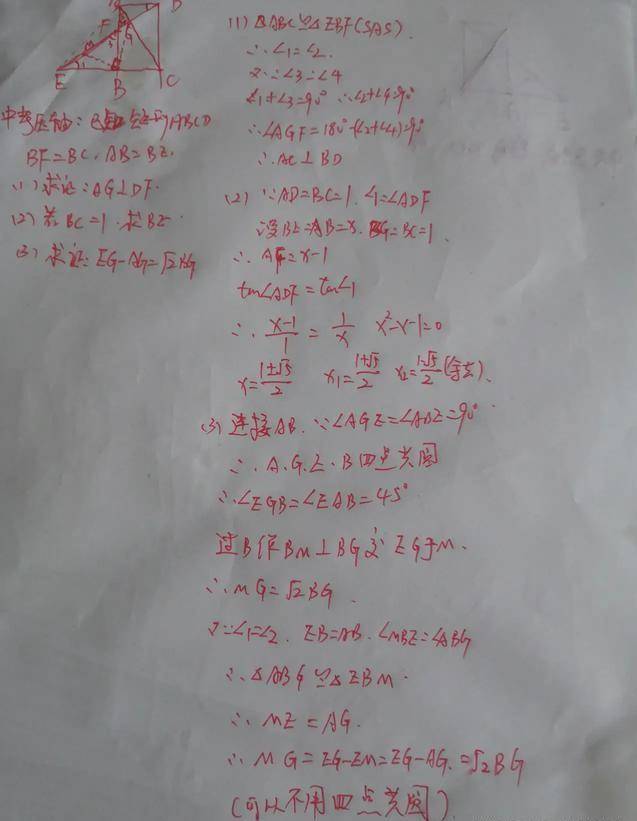 F
D
G
E
B
C
中考压轴：已知矩形ABCD
BF=BC，AB=BE，
(1) 求证：AG⊥DF.
(2) 若BC=1．求BE
(3) 求证：EG-AG=√2BG
(1) △ABC≌△EBF(SAS)．
∴∠1=∠2
又∵∠3=∠4
∠1+∠3=90° ∴∠2+∠4=90°
∴∠AGF=180°-(∠2+∠4)=90°
∴AC⊥BD
(2) ∵AD=BC=1．∠1=∠ADF
设BE=AB=x．BG=BC=1．
∴AF=x-1
tan∠ADF=tan∠1
∴ x-1/1 = 1/x x²-x-1=0
x=1±√5/2 x₁=1+√5/2 x₂=1-√5/2 (舍去)．
(3) 连接AB．∵∠AGE=∠ABE=90°
∴A．G．E．B四点共圆
∴∠EGB=∠EAB=45°
过B作BM⊥BG交EG于M．
∴MG=√2BG
又∵∠1=∠2．EB=AB．∠MBE=∠ABG
∴△ABG≌△EBM．
∴ME=AG．
∴MG=EG-EM=EG-AG．=√2BG
(可以不用四点共圆)